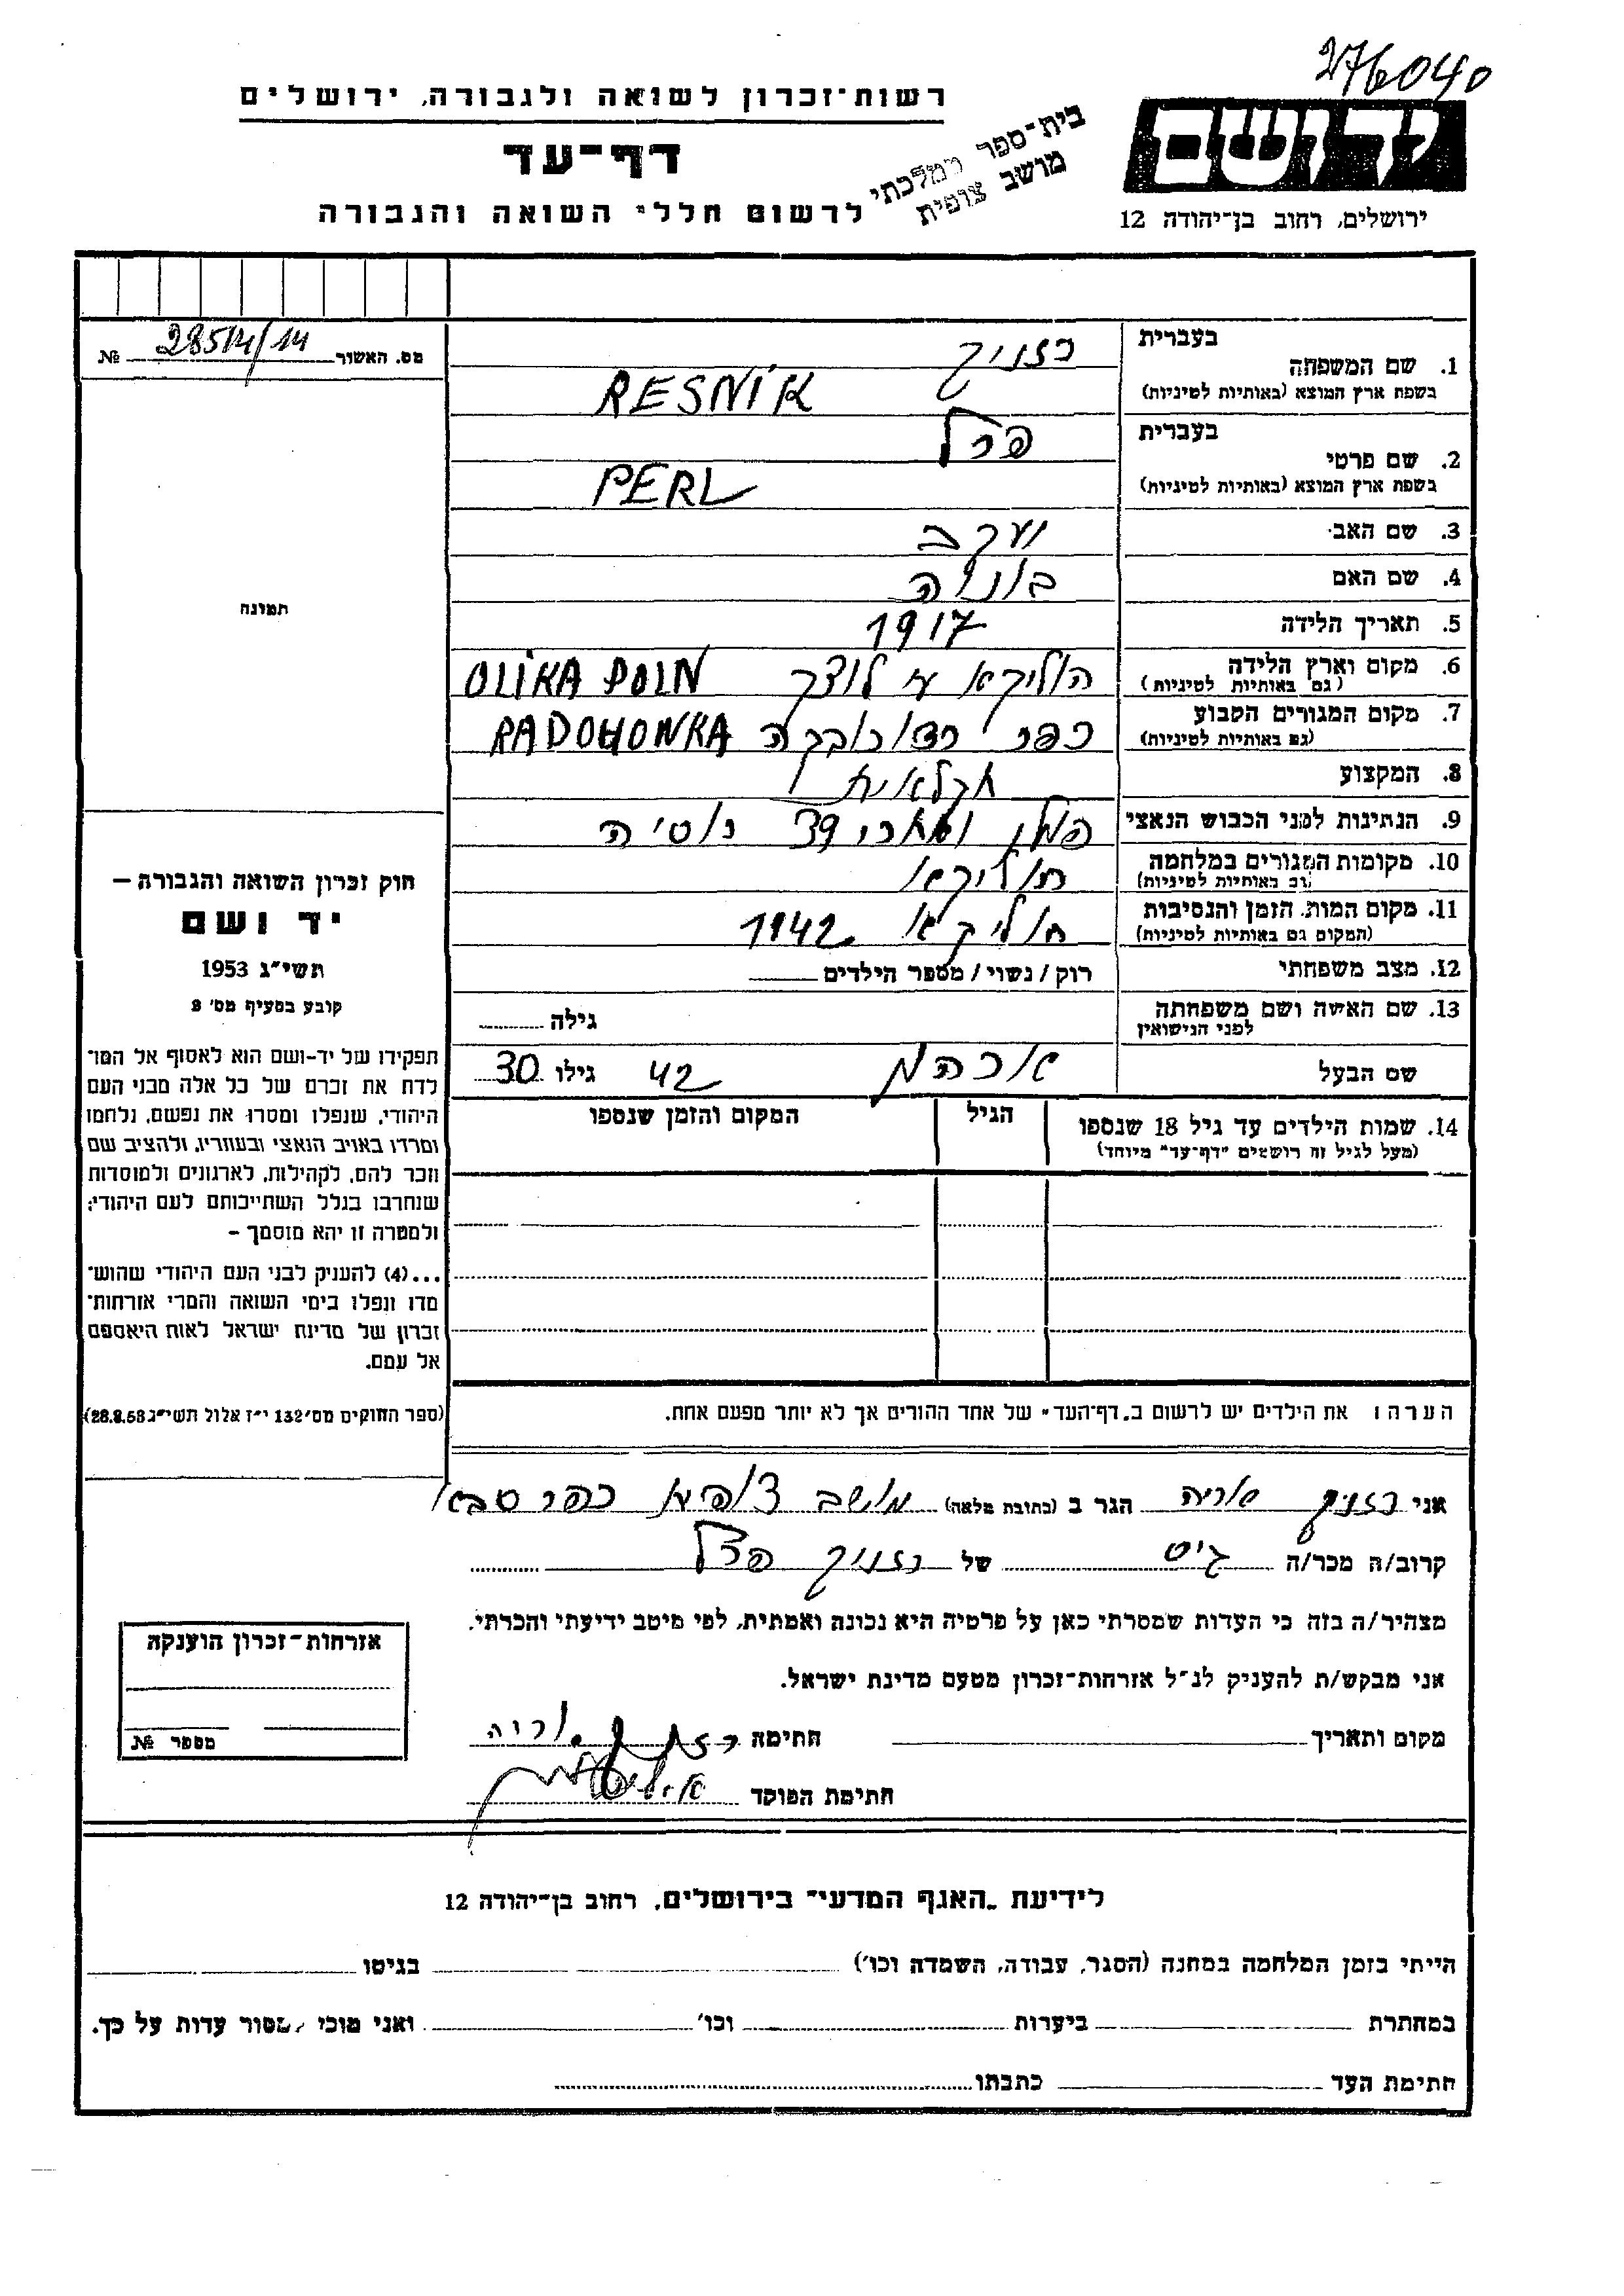 276040
רשות-זכרון לשואה ולגבורה, ירושלים
דף-עד
לרשום חללי השואה והגבורה
בית-ספר ממלכתי
מושב צופית
יד ושם
ירושלים, רחוב בן-יהודה 12
מס. האשור № 28514/14
1. שם המשפחה בעברית רזניק
בשפת ארץ המוצא (באותיות לטיניות) RESNIK
2. שם פרטי בעברית פרל
בשפת ארץ המוצא (באותיות לטיניות) PERL
3. שם האב יעקב
4. שם האם
5. תאריך הלידה 1917
6. מקום וארץ הלידה (גם באותיות לטיניות) הוליקא ע״י לוצק OLIKA POLN
7. מקום המגורים הקבוע (גם באותיות לטיניות) כפר RADOHONKA
8. המקצוע חקלאית
9. הנתינות לפני הכבוש הנאצי פולן ואחרי 39 רוסיה
10. מקומות המגורים במלחמה (גם באותיות לטיניות) הוליקא
11. מקום המות, הזמן והנסיבות (המקום גם באותיות לטיניות) הוליקא 1942
12. מצב משפחתי רוק / נשוי / מספר הילדים
13. שם האשה ושם משפחתה לפני הנישואין גילה
שם הבעל אברהם 42 גילו 30
14. שמות הילדים עד גיל 18 שנספו הגיל המקום והזמן שנספו
(מעל לגיל זה רושמים "דף-עד" מיוחד)
הערה: את הילדים יש לרשום ב"דף-העד" של אחד ההורים אך לא יותר מפעם אחת.
תמונה
חוק זכרון השואה והגבורה –
יד ושם
תשי"ג 1953
קובע בסעיף מס' 2
תפקידו של יד-ושם הוא לאסוף אל המו-
לדת את זכרם של כל אלה מבני העם
היהודי, שנפלו ומסרו את נפשם, נלחמו
ומרדו באויב הנאצי ובעוזריו, ולהציב שם
וזכר להם, לקהילות, לארגונים ולמוסדות
שנחרבו בגלל השתייכותם לעם היהודי;
ולמטרה זו יהא מוסמך –
...(4) להעניק לבני העם היהודי שהוש-
מדו ונפלו בימי השואה והמרי אזרחות-
זכרון של מדינת ישראל לאות היאספם
אל עמם.
(ספר החוקים מס' 132 י"ז אלול תשי"ג 28.8.53)
אני רזניק אריה הגר ב (כתובת מלאה) מושב צופית כפר סבא
קרוב/ה מכר/ה גיס של רזניק פרל
מצהיר/ה בזה כי העדות שמסרתי כאן על פרטיה היא נכונה ואמתית, לפי מיטב ידיעתי והכרתי.
אני מבקש/ת להעניק לנ"ל אזרחות-זכרון מטעם מדינת ישראל.
מקום ותאריך חתימה רזניק אריה
חתימת הפוקד
אזרחות-זכרון הוענקה
מספר №
לידיעת "האגף המדעי" בירושלים, רחוב בן-יהודה 12
הייתי בזמן המלחמה במחנה (הסגר, עבודה, השמדה וכו') בגיטו
במחתרת ביערות וכו' ואני מוכן למסור עדות על כך.
חתימת העד כתבתו